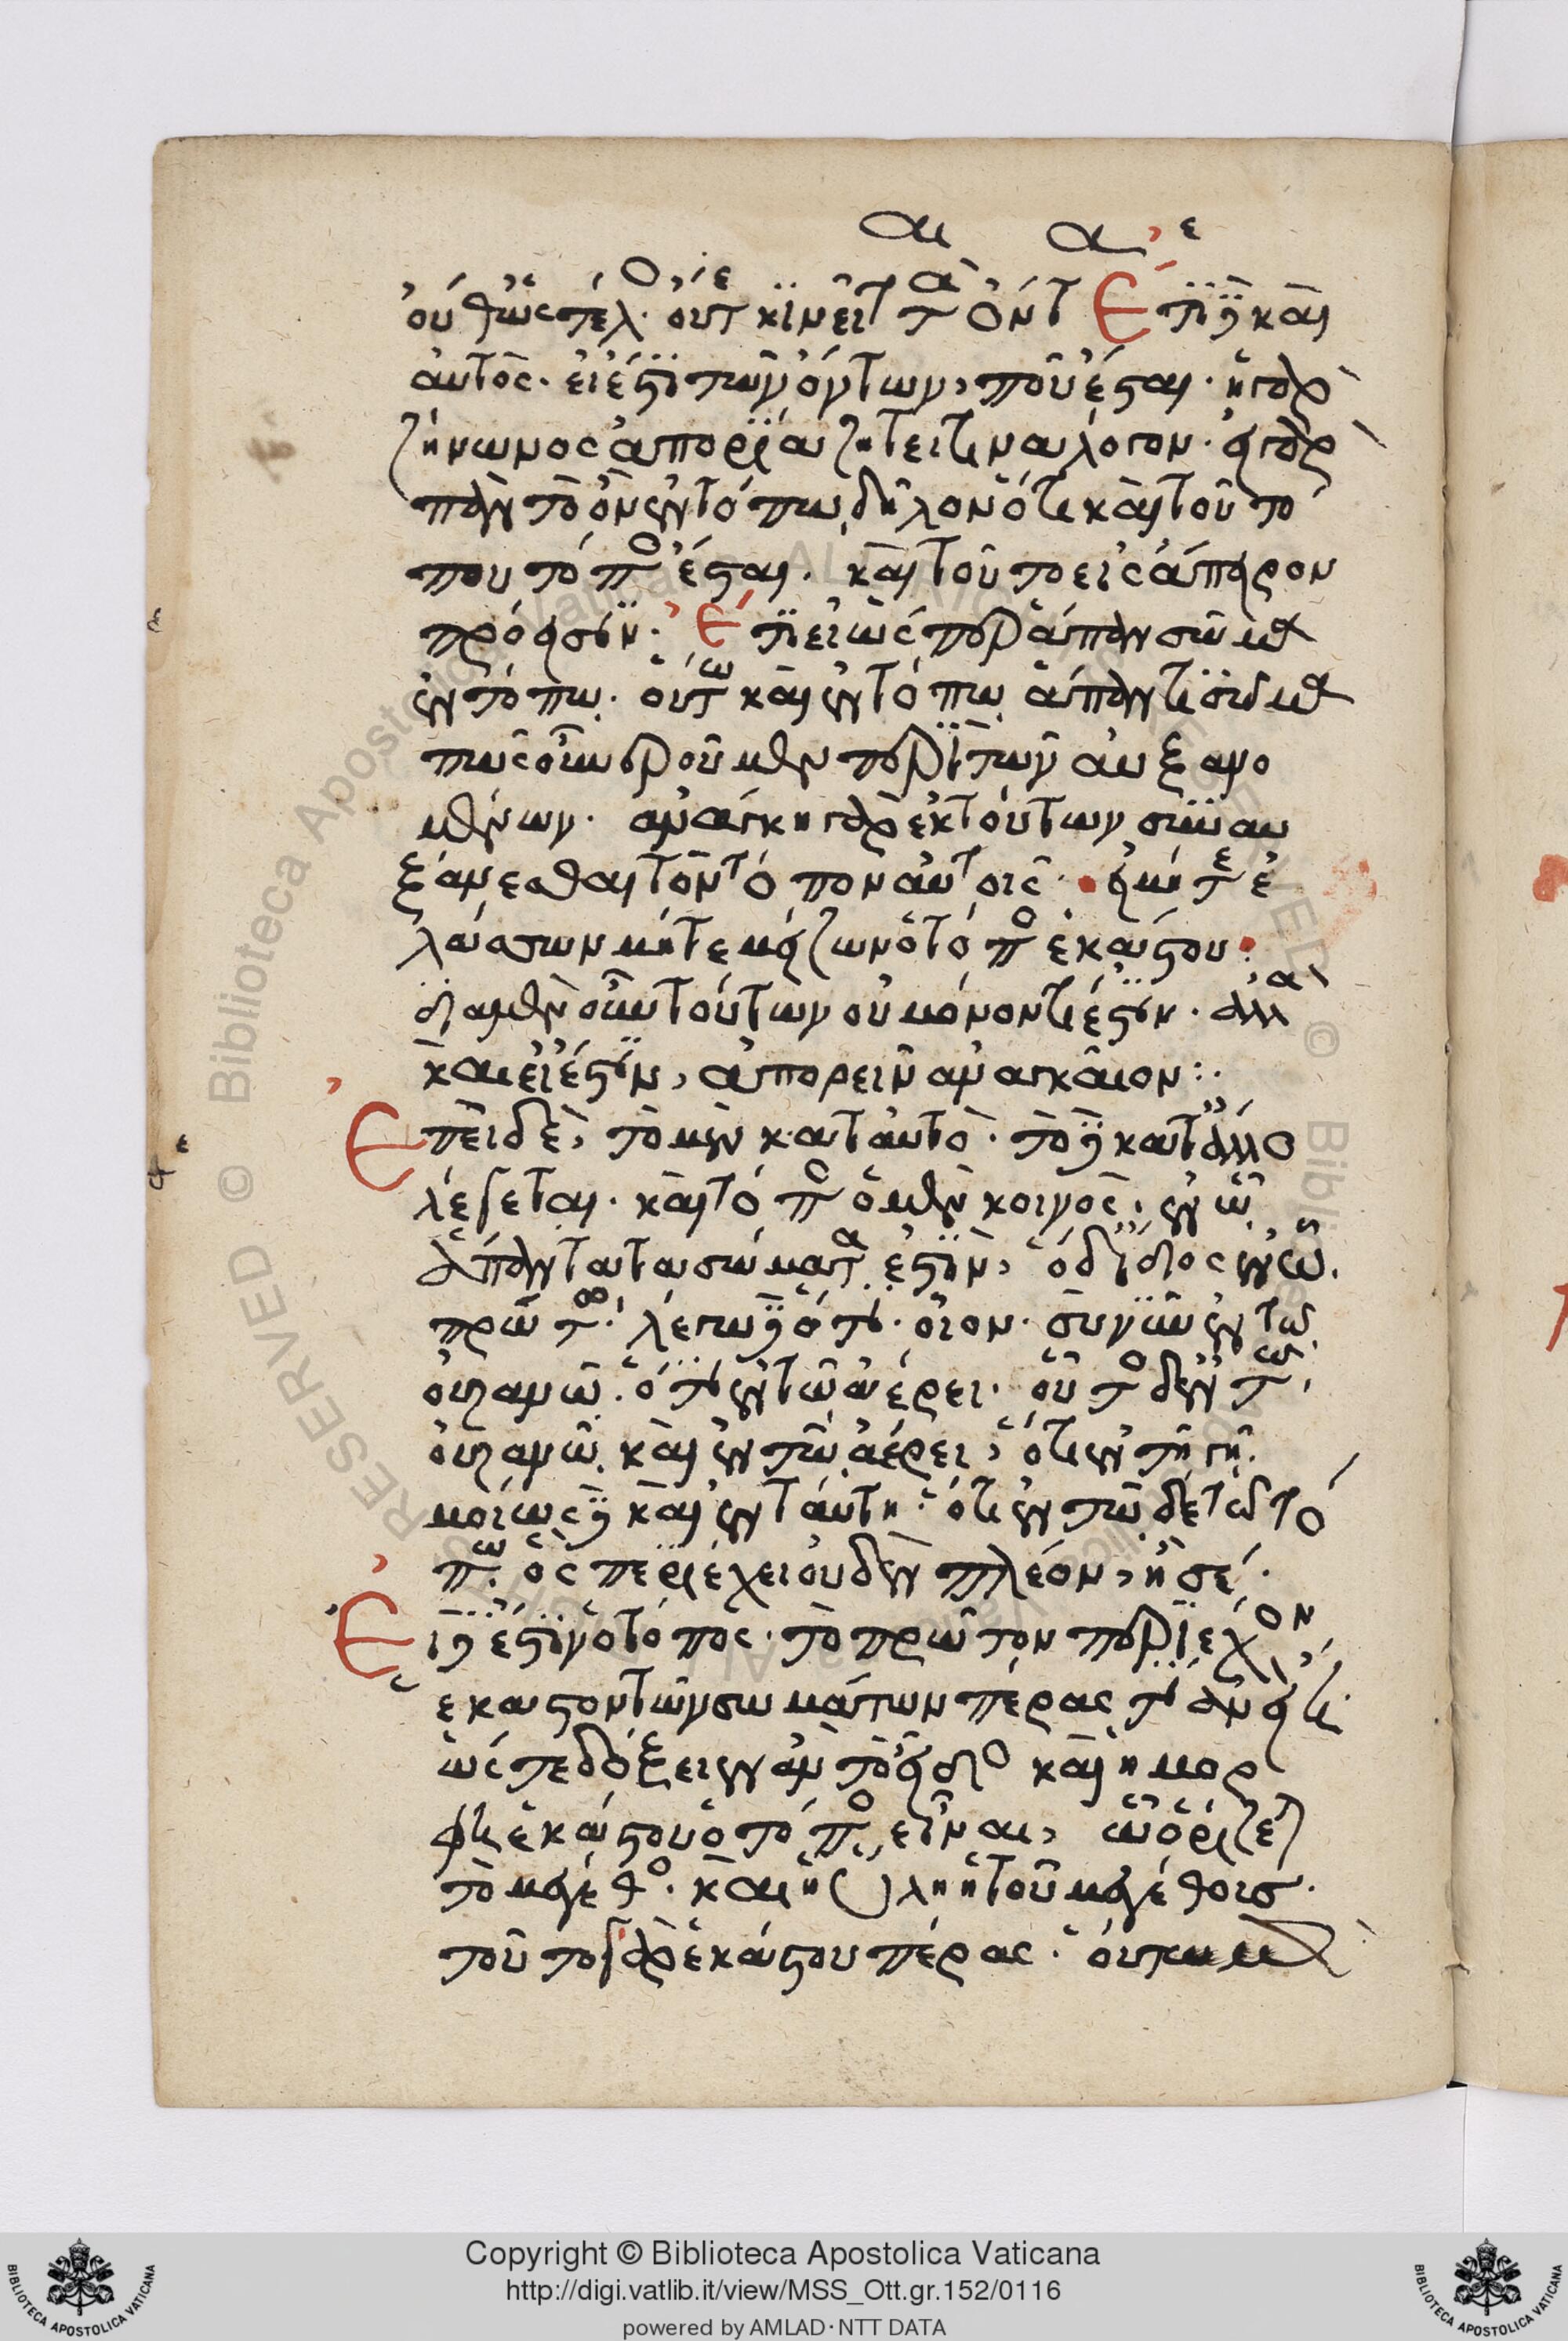 οὔθ' ὡς τέλος οὔτε κινεῖ τὰ ὄντα. Ἔτι δὲ καὶ
αὐτὸς εἰ ἔστι τῶν ὄντων, ποῦ ἔσται. ἡ γὰρ
ζήνωνος ἀπορία ζητεῖ τινα λόγον. εἰ γὰρ
πᾶν τὸ ὂν ἐν τόπῳ, δῆλον ὅτι καὶ τοῦ τό
που τόπος ἔσται. καὶ τοῦτο εἰς ἄπειρον
πρόεισιν. Ἔτι ὥσπερ ἅπαν σῶμα
ἐν τόπῳ. οὕτω καὶ ἐν τόπῳ ἅπαντι σῶμα
πῶς οὖν ἐροῦμεν περὶ τῶν αὐξανο
μένων. ἀνάγκη γὰρ ἐκ τούτων συναυ
ξάνεσθαι τὸν τόπον αὐτοῖς. εἰ μήτε ἐ
λάττων μήτε μείζων ὁ τόπος ἑκάστου.
διὰ μὲν οὖν τούτων οὐ μόνον τί ἐστιν. ἀλλὰ
καὶ εἰ ἔστιν, ἀπορεῖν ἀναγκαῖον:
Ἐπεὶ δὲ, τὸ μὲν κατ' αὐτὸ. τὸ δὲ κατ' ἄλλο
λέγεται. καὶ τόπος ὁ μὲν κοινὸς. ἐν ᾧ
ἅπαντα τὰ σώματα ἐστὶν, ὁ δ' ἴδιος ἐν ᾧ
πρώτῳ. λέγω δὲ ὅτι. οἷον. σὺ νῦν ἐν τῷ
οὐρανῷ. ὅτι ἐν τῷ ἀέρει. οὗτος δ' ἐν τῷ
οὐρανῷ. καὶ ἐν τῷ ἀέρει, ὅτι ἐν τῇ γῇ.
μοίως δὲ καὶ ἐν ταύτη. ὅτι ἐν τῷδε τῷ τό
πῳ. ὃς περιέχει οὐδὲν πλέον, ἢ σέ.
Εἰ δὲ ἔστιν ὁ τόπος. τὸ πρῶτον περιέχον
ἕκαστον τῶν σωμάτων πέρας τι ἂν εἴη
ὥστε δόξειεν ἂν τὸ εἶδος καὶ ἡ μορ
φὴ ἑκάστου ὁ τόπος εἶναι, ᾧ ὁρίζεται
τὸ μέγεθος. καὶ ἡ ὕλη ἡ τοῦ μεγέθους.
τοῦτο γὰρ ἑκάστου πέρας. οὕτω μὲν
Copyright © Biblioteca Apostolica Vaticana
http://digi.vatlib.it/view/MSS_Ott.gr.152/0116
powered by AMLAD·NTT DATA